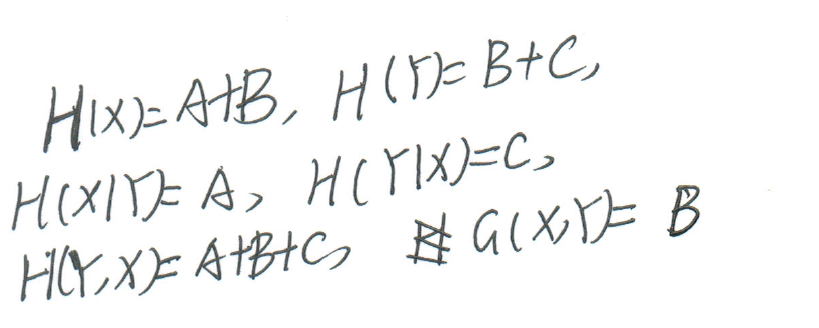 H(X)=A+B, H(Y)=B+C,
H(X|Y)=A, H(Y|X)=C,
H(Y,X)=A+B+C, G(X,Y)=B